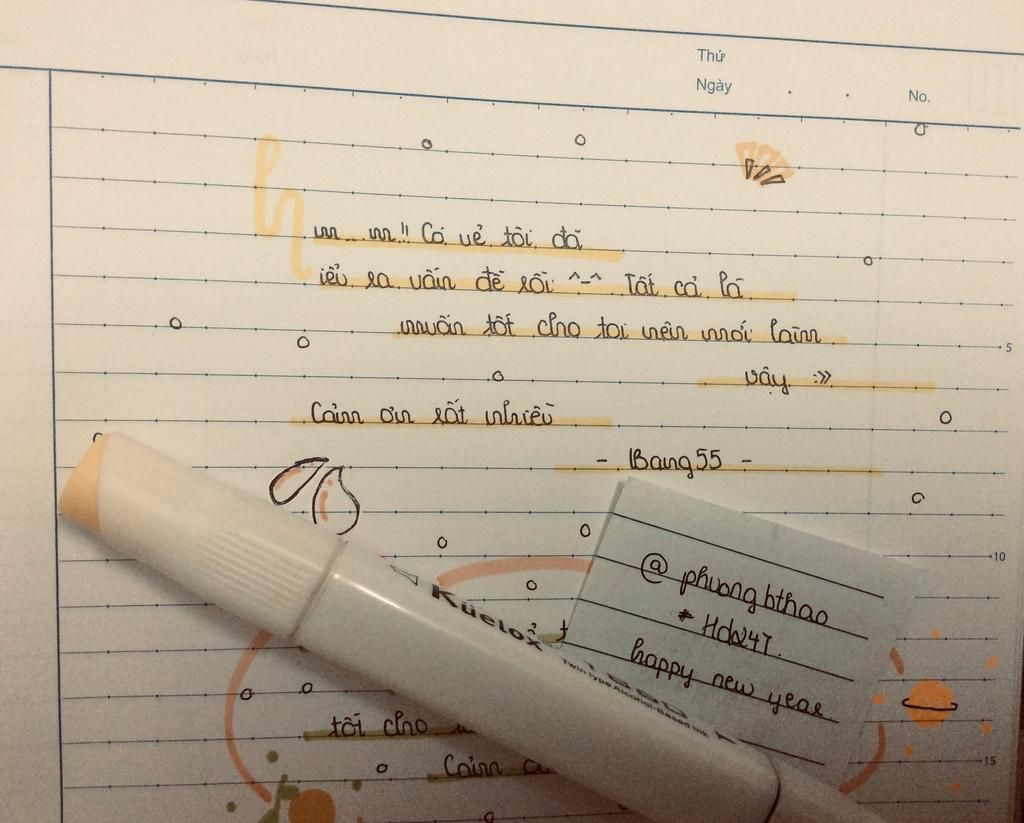 Thứ
Ngày . .
No.
h
m... m!! Có vẻ tôi đã
iểu ra vấn đề rồi ^-^ Tất cả là
muốn tốt cho tôi nên mới làm
vậy :))
Cảm ơn rất nhiều
- Bang55 -
5
10
15
@ phuongbthao
# Hdz47.
happy new year
Kuelox
Twin Type Alcohol-Based Ink
tốt cho
Cảm